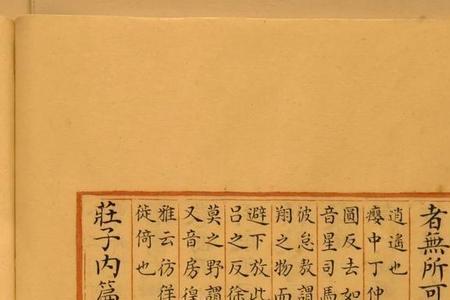 者無所可
逍遙也
癭中丁仲
圓反去如
音星司馬
彼怠敖謂
翔之物而
避下放此
呂之反徐
莫之野謂
又音房徨
雅云彷徉
徙倚也
莊子内篇